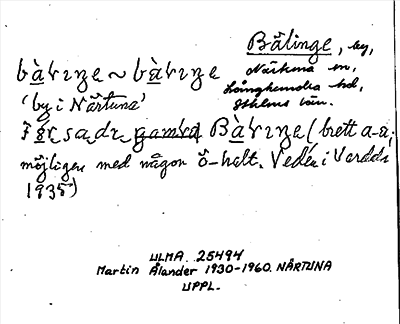 Bälinge, by,
Närtuna sn,
Långhundra hd,
Sthlms län.
bàrıŋe ~ bàrıŋe
'by i Närtuna'
sade gamla Bàrıŋe (brett a-a;
möjligen med någon ö-halt. Vedén i Vardds
1935)
ULMA 25494
Martin Ålander 1930-1960. NÄRTUNA
UPPL.